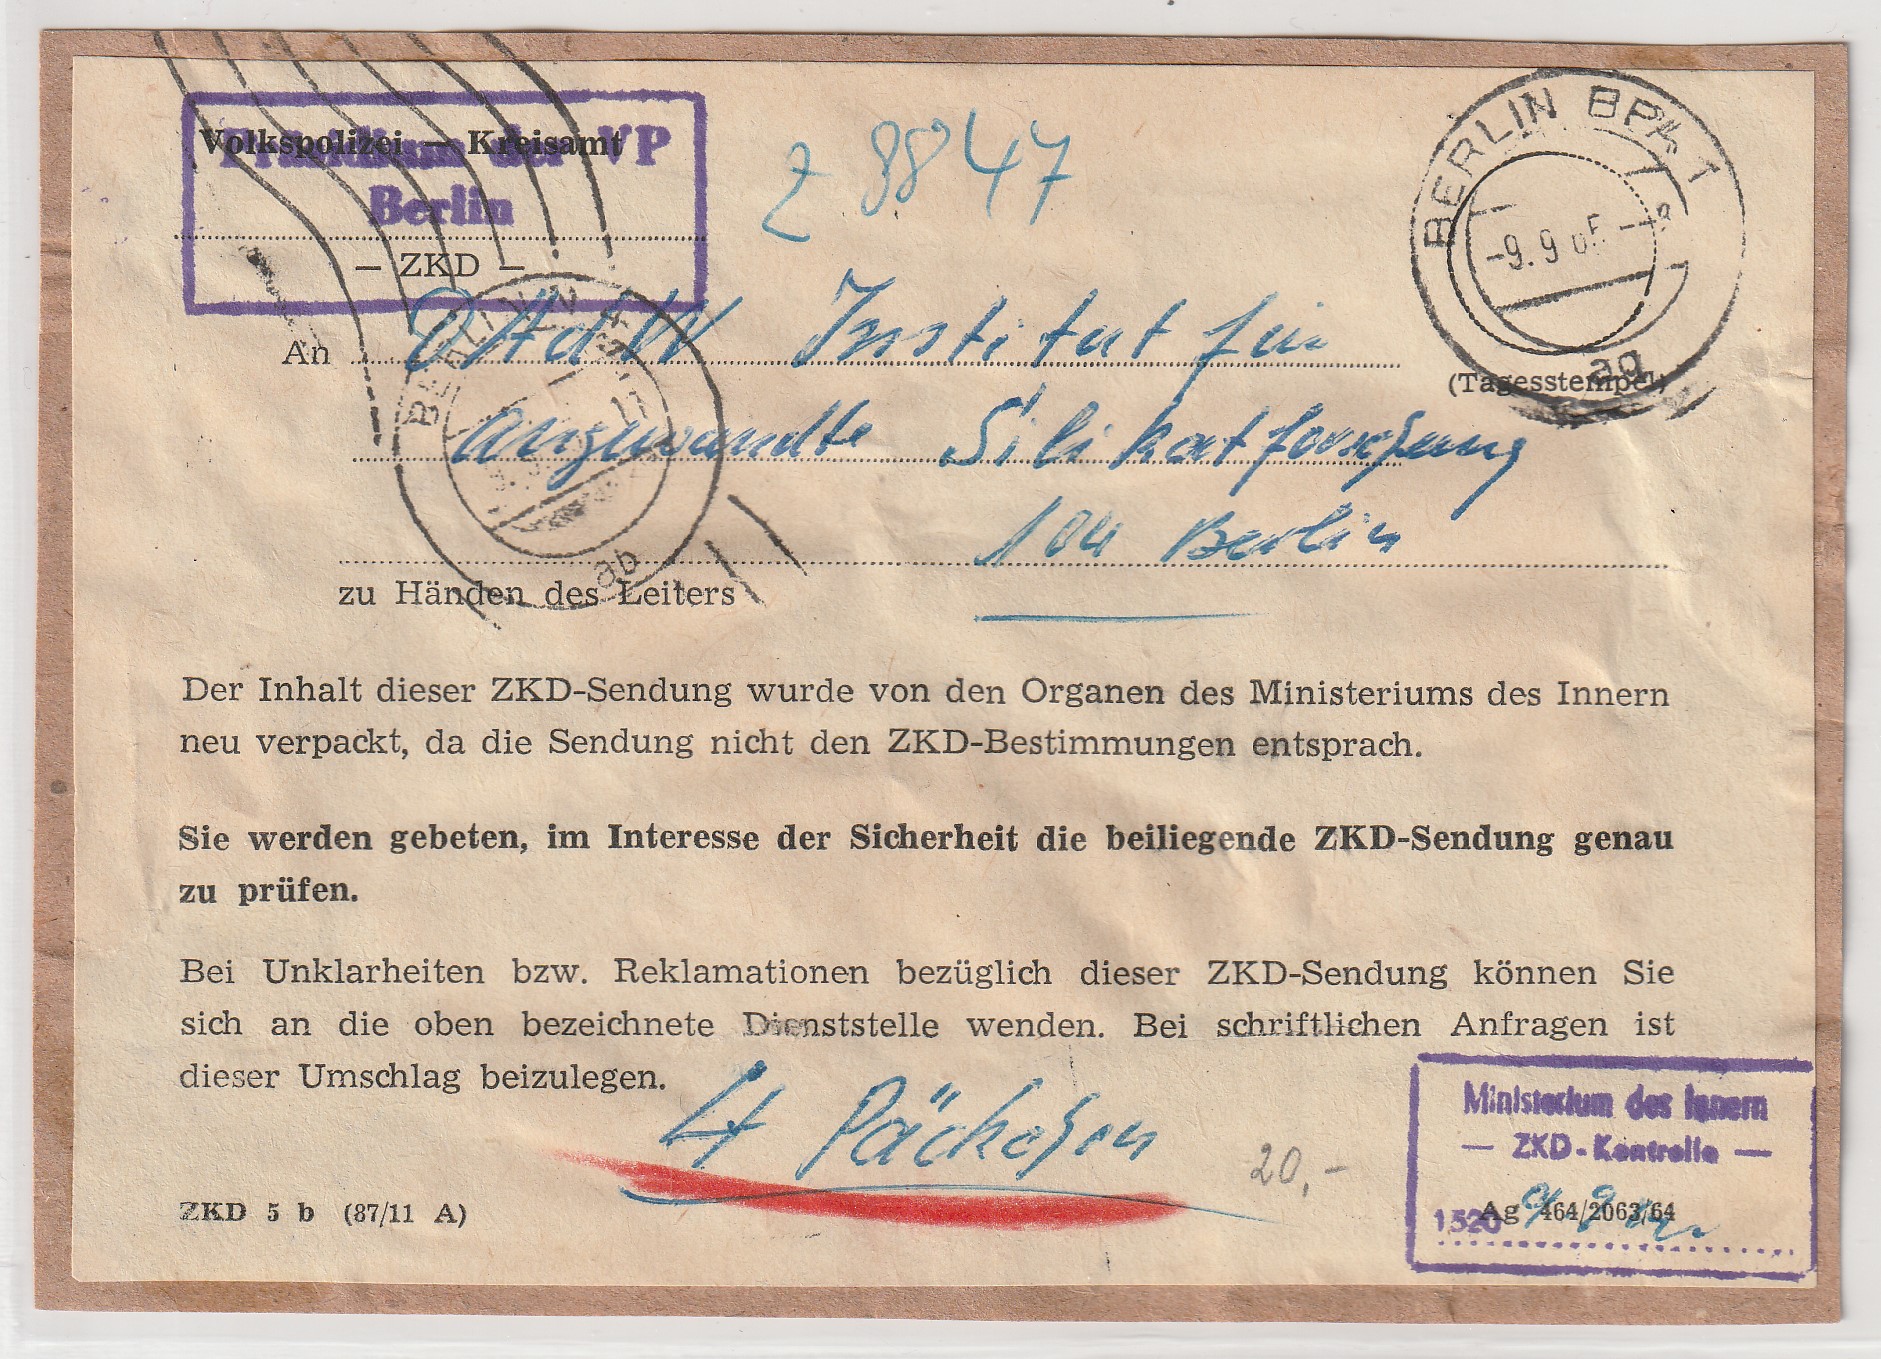 Volkspolizei — Kreisamt
Präsidium der VP
Berlin
— ZKD —
Z 8847
BERLIN BPA 1
-9.9.65--8
ag
(Tagesstempel)
An DAdW Institut für
angewandte Silikatforschung
104 Berlin
BERLIN
ab
zu Händen des Leiters
Der Inhalt dieser ZKD-Sendung wurde von den Organen des Ministeriums des Innern
neu verpackt, da die Sendung nicht den ZKD-Bestimmungen entsprach.
Sie werden gebeten, im Interesse der Sicherheit die beiliegende ZKD-Sendung genau
zu prüfen.
Bei Unklarheiten bzw. Reklamationen bezüglich dieser ZKD-Sendung können Sie
sich an die oben bezeichnete Dienststelle wenden. Bei schriftlichen Anfragen ist
dieser Umschlag beizulegen.
4 Päckchen
20,-
Ministerium des Innern
— ZKD-Kontrolle —
1520
ZKD 5 b (87/11 A)
Ag 464/2063/64